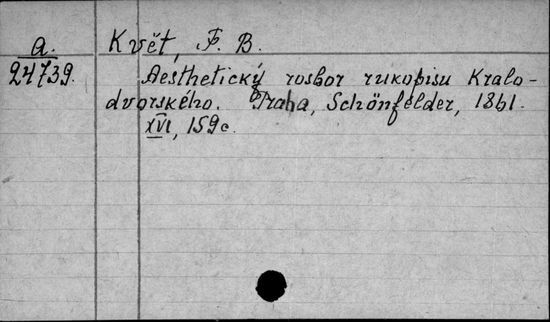 a. Květ, F. B.
24739. Aesthetický rosbor rukopisu Kralo-
dvorského. Praha, Schönfelder, 1861.
XVI, 159c.